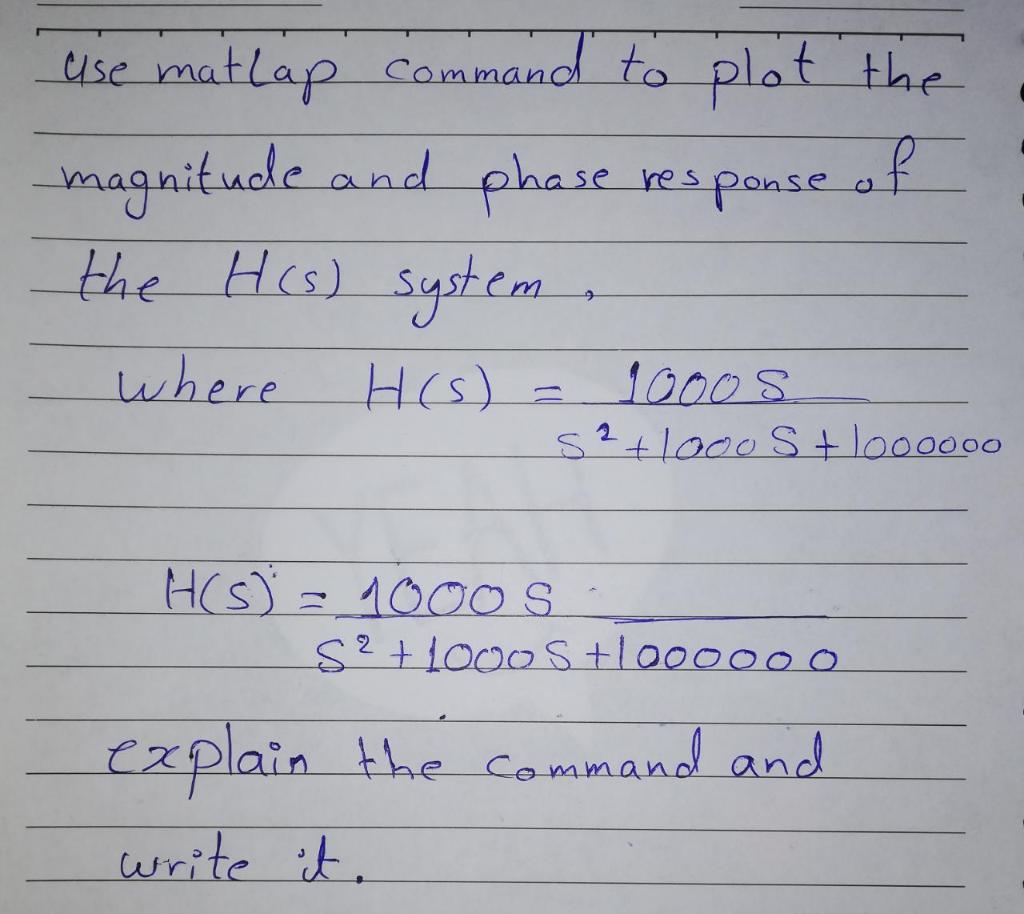 use matlap command to plot the
magnitude and phase response of
the H(s) system,
where H(s) = 1000 S
S² + 1000 S + 1000000
H(S) = 1000 S
S² + 1000 S + 1000000
explain the command and
write it.